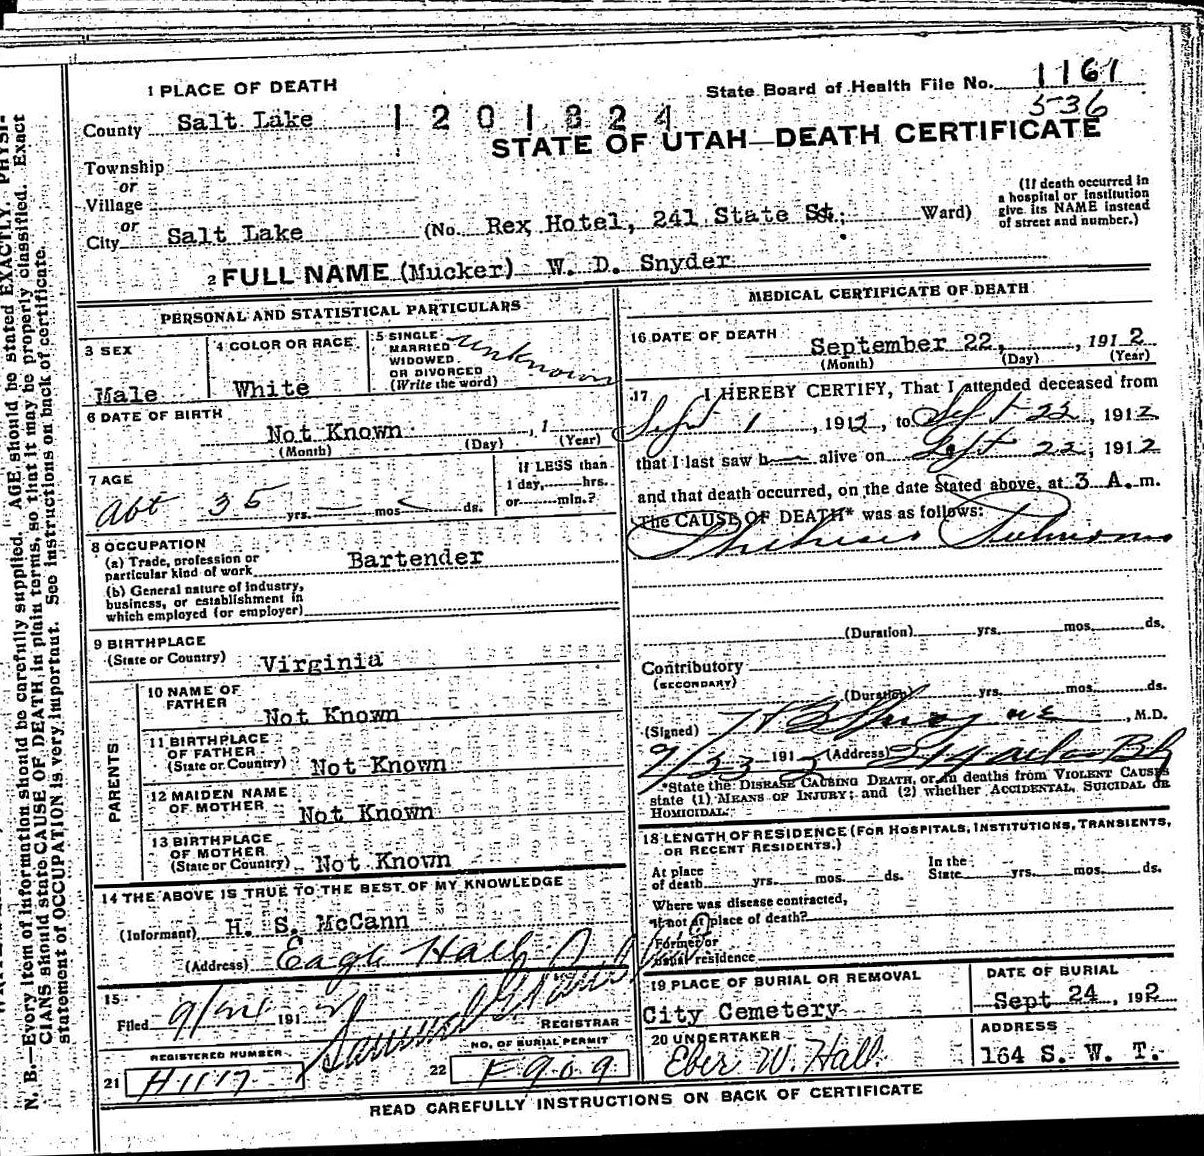 1 PLACE OF DEATH
State Board of Health File No. 1161
536
County Salt Lake
1201324
STATE OF UTAH—DEATH CERTIFICATE
Township
or
Village
or
City Salt Lake (No. Rex Hotel, 241 State St. Ward)
(If death occurred in
a hospital or institution
give its NAME instead
of street and number.)
2 FULL NAME (Mucker) W. D. Snyder
PERSONAL AND STATISTICAL PARTICULARS
3 SEX
Male
4 COLOR OR RACE
White
5 SINGLE
MARRIED
WIDOWED
OR DIVORCED
(Write the word)
unknown
6 DATE OF BIRTH
Not Known , 1
(Month) (Day) (Year)
7 AGE
Abt 35 yrs. mos. ds.
If LESS than
1 day, hrs.
or min.?
8 OCCUPATION
(a) Trade, profession or
particular kind of work Bartender
(b) General nature of industry,
business, or establishment in
which employed (or employer)
9 BIRTHPLACE
(State or Country) Virginia
PARENTS
10 NAME OF
FATHER
Not Known
11 BIRTHPLACE
OF FATHER
(State or Country) Not Known
12 MAIDEN NAME
OF MOTHER Not Known
13 BIRTHPLACE
OF MOTHER
(State or Country) Not Known
14 THE ABOVE IS TRUE TO THE BEST OF MY KNOWLEDGE
(Informant) H. S. McCann
(Address) Eagle Hall
15
Filed 9/24 191 2 Samuel G. Paul
REGISTRAR
REGISTERED NUMBER
21 H1117
NO. OF BURIAL PERMIT
22 F909
MEDICAL CERTIFICATE OF DEATH
16 DATE OF DEATH
September 22, , 1912
(Month) (Day) (Year)
17 I HEREBY CERTIFY, That I attended deceased from
Sept 1 , 1912, to Sept 22, 1912
that I last saw h alive on Sept 22, 1912
and that death occurred, on the date stated above, at 3 A. m.
The CAUSE OF DEATH* was as follows:
Phthisis Pulmon
(Duration) yrs. mos. ds.
Contributory
(SECONDARY)
(Duration) yrs. mos. ds.
(Signed) , M.D.
9/23 191 2 (Address)
*State the DISEASE CAUSING DEATH, or in deaths from VIOLENT CAUSES
state (1) MEANS OF INJURY; and (2) whether ACCIDENTAL, SUICIDAL OR
HOMICIDAL.
18 LENGTH OF RESIDENCE (FOR HOSPITALS, INSTITUTIONS, TRANSIENTS,
OR RECENT RESIDENTS.)
At place
of death yrs. mos. ds.
In the
State yrs. mos. ds.
Where was disease contracted,
if not at place of death?
Former or
usual residence
19 PLACE OF BURIAL OR REMOVAL
City Cemetery
DATE OF BURIAL
Sept 24 , 1912
20 UNDERTAKER
Eber W. Hall
ADDRESS
164 S. W. T.
READ CAREFULLY INSTRUCTIONS ON BACK OF CERTIFICATE
N. B.—Every item of information should be carefully supplied. AGE should be stated EXACTLY. PHYSI-
CIANS should state CAUSE OF DEATH in plain terms, so that it may be properly classified. Exact
statement of OCCUPATION is very important. See instructions on back of certificate.